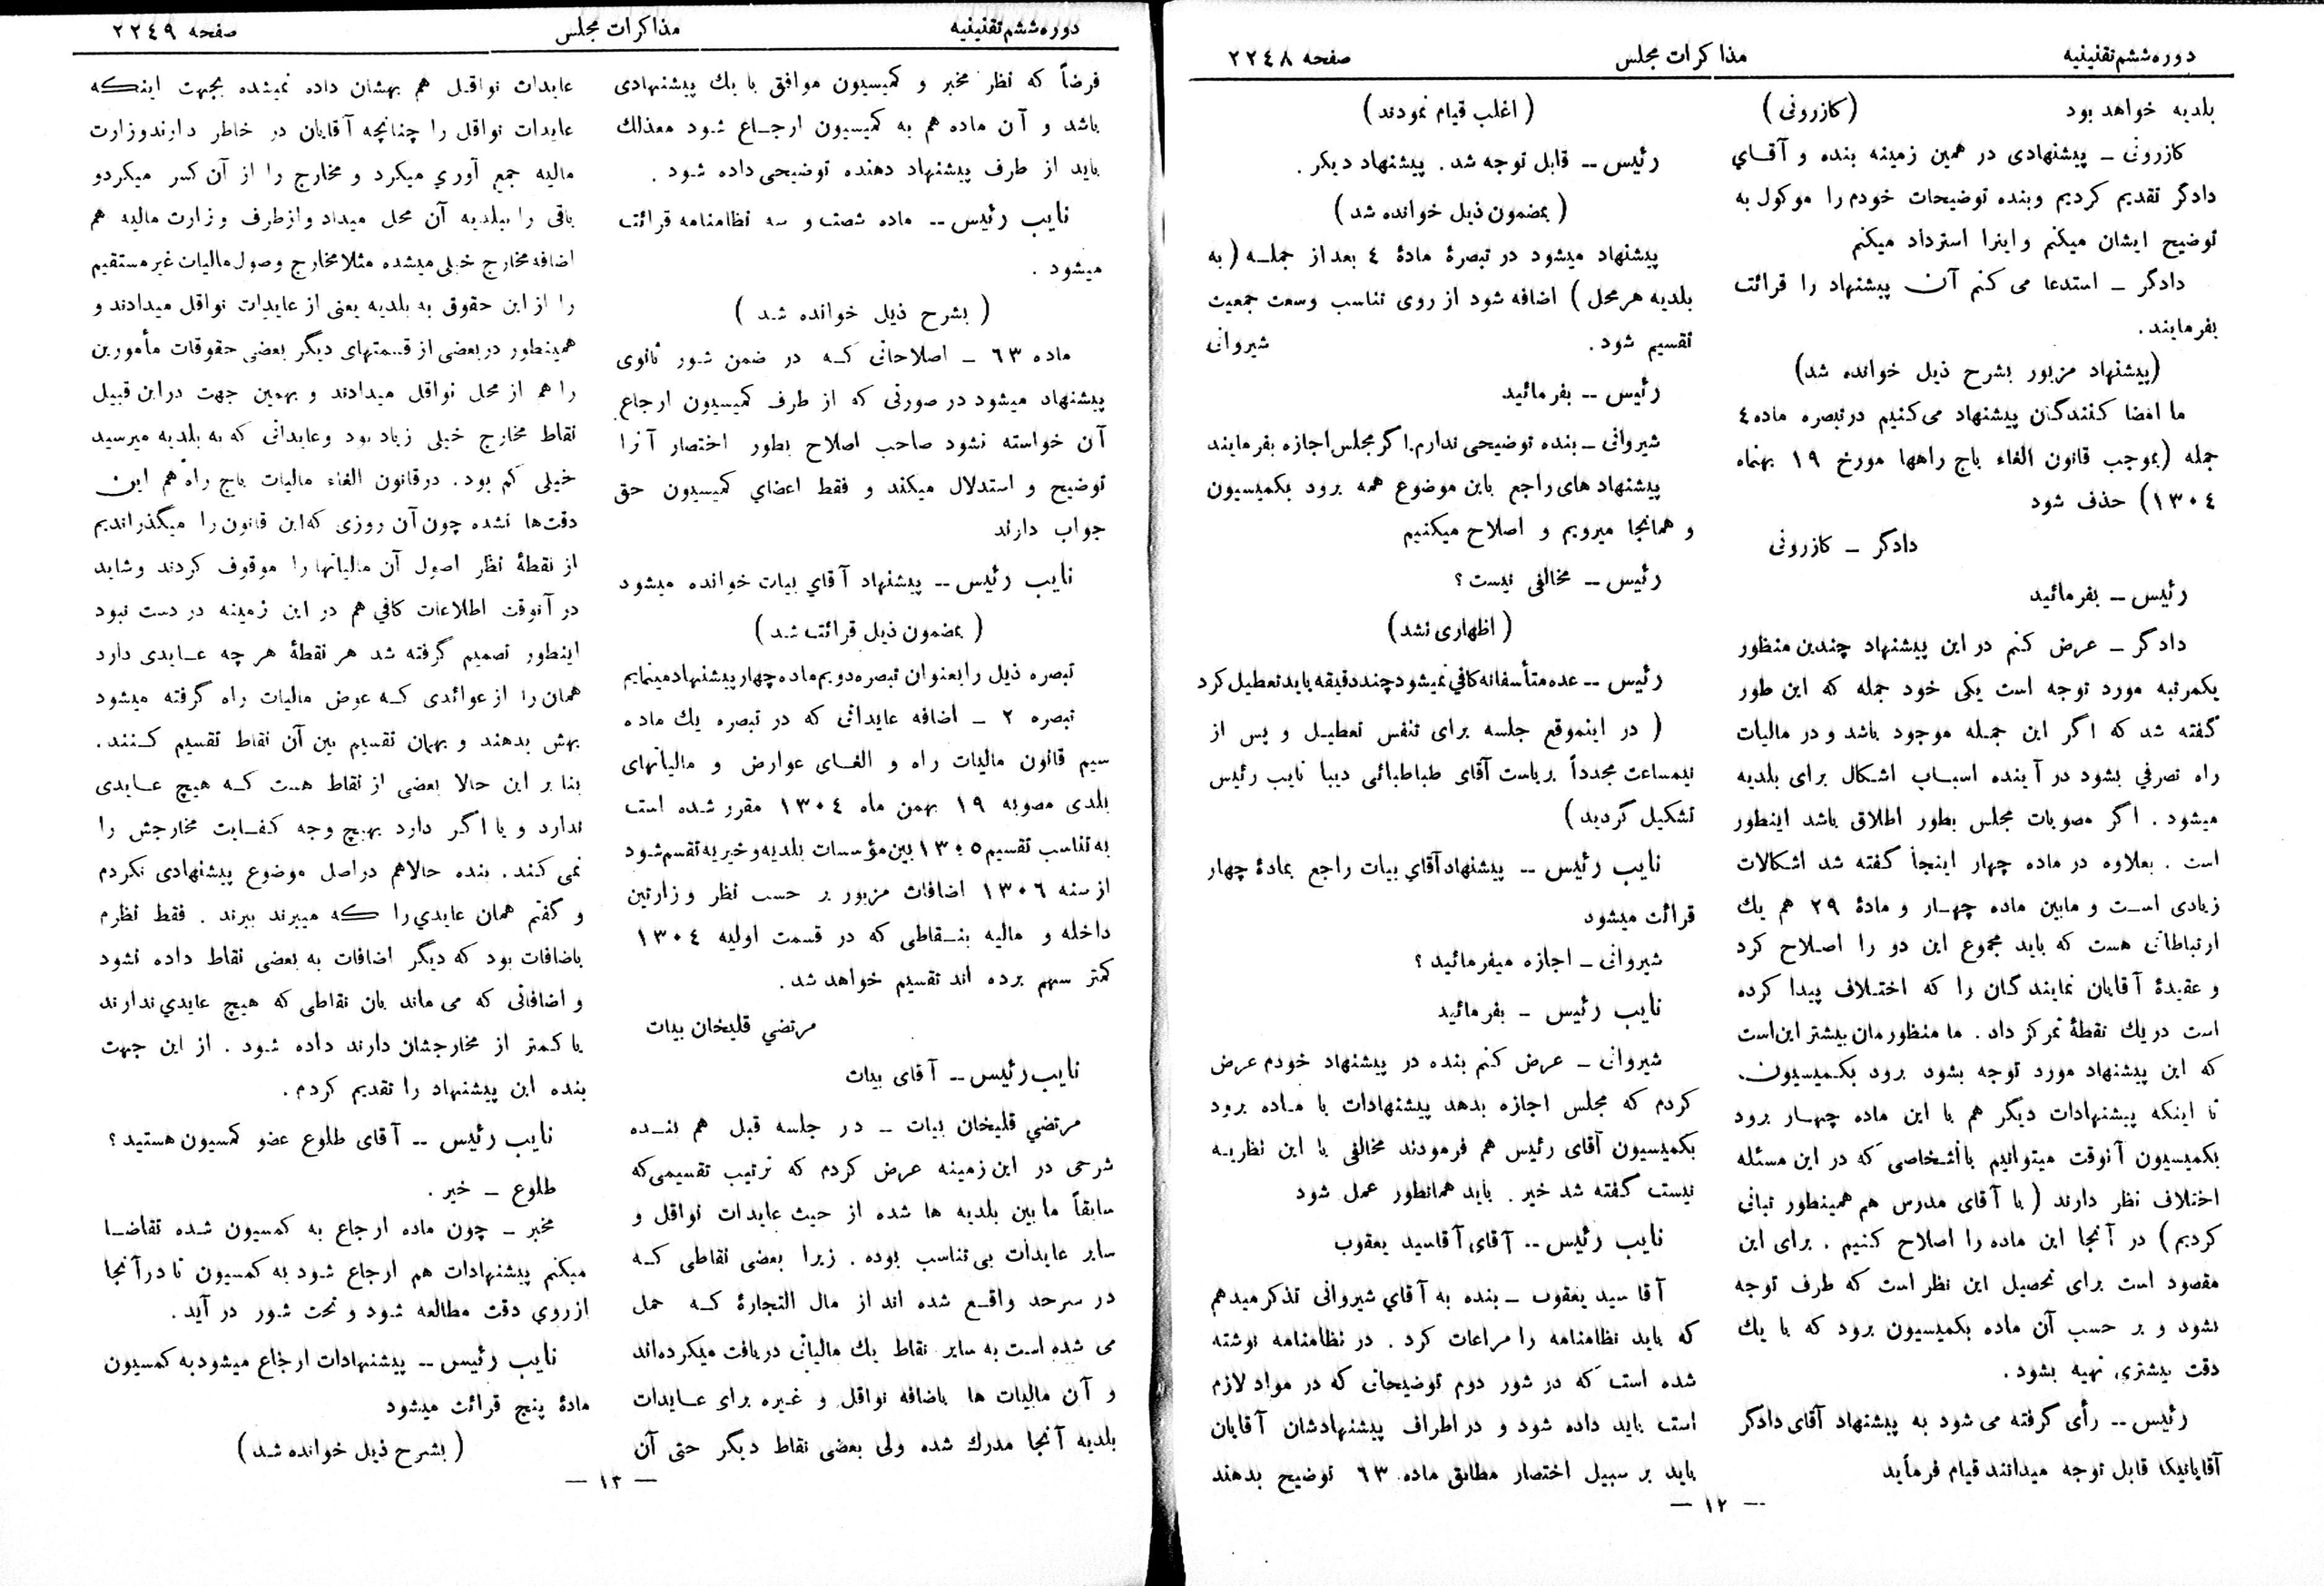 دوره ششم تقنینیه
مذاکرات مجلس
صفحه ۲۲۴۸
بلدیه خواهد بود (کازرونی)
کازرونی ـ پیشنهادی در همین زمینه بنده و آقای
دادگر تقدیم کردیم وبنده توضیحات خودم را موکول به
توضیح ایشان میکنم واینرا استرداد میکنم
دادگر ـ استدعا می کنم آن پیشنهاد را قرائت
بفرمایند.
(پیشنهاد مزبور بشرح ذیل خوانده شد)
ما امضا کنندگان پیشنهاد می‌کنیم در تبصره ماده ۴
جمله (بموجب قانون الغاء باج راهها مورخ ۱۹ بهماه
۱۳۰۴) حذف شود
دادگر ـ کازرونی
رئیس ــ بفرمائید
دادگر ـ عرض کنم در این پیشنهاد چندین منظور
یکمرتبه مورد توجه است یکی خود جمله که این طور
گفته شد که اگر این جمله موجود باشد و در مالیات
راه تصرفی بشود در آینده اسباب اشکال برای بلدیه
میشود . اگر مصوبات مجلس بطور اطلاق باشد اینطور
است . بعلاوه در ماده چهار اینجا گفته شد اشکالات
زیادی است و مابین ماده چهار و مادهٔ ۲۹ هم یك
ارتباطاتی هست که باید مجموع این دو را اصلاح کرد
و عقیدهٔ آقایان نمایندگان را که اختلاف پیدا کرده
است در یك نقطهٔ تمرکز داد . ما منظورمان بیشتر این‌است
که این پیشنهاد مورد توجه بشود برود بکمیسیون.
تا اینکه پیشنهادات دیگر هم با این ماده چهار برود
بکمیسیون آنوقت میتوانیم با اشخاصی که در این مسئله
اختلاف نظر دارند (با آقای مدرس هم همینطور تبانی
کردیم) در آنجا این ماده را اصلاح کنیم . برای این
مقصود است برای تحصیل این نظر است که طرف توجه
بشود و بر حسب آن ماده بکمیسیون برود که با یك
دقت بیشتری تهیه بشود .
رئیس ــ رأی گرفته می شود به پیشنهاد آقای دادگر
آقایانیکه قابل توجه میدانند قیام فرمایند
(اغلب قیام نمودند)
رئیس ــ قابل توجه شد . پیشنهاد دیگر .
(بمضمون ذیل خوانده شد)
پیشنهاد میشود در تبصرهٔ مادهٔ ۴ بعد از جمله (به
بلدیه هر محل) اضافه شود از روی تناسب وسعت جمعیت
تقسیم شود . شیروانی
رئیس ــ بفرمائید
شیروانی ـ بنده توضیحی ندارم. اگر مجلس اجازه بفرمایند
پیشنهاد های راجع باین موضوع همه برود بکمیسیون
و همانجا میرویم و اصلاح میکنیم
رئیس ــ مخالفی نیست ؟
(اظهاری نشد)
رئیس ــ عده متأسفانه کافی نمیشود چند دقیقه باید تعطیل کرد
( در اینموقع جلسه برای تنفس تعطیل و پس از
نیمساعت مجدداً بریاست آقای طباطبائی دیبا نایب رئیس
تشکیل گردید)
نایب رئیس ــ پیشنهاد آقای بیات راجع بمادهٔ چهار
قرائت میشود
شیروانی ـ اجازه میفرمائید ؟
نایب رئیس ـ بفرمائید
شیروانی ـ عرض کنم بنده در پیشنهاد خودم عرض
کردم که مجلس اجازه بدهد پیشنهادات با ماده برود
بکمیسیون آقای رئیس هم فرمودند مخالفی با این نظریه
نیست گفته شد خیر . باید همانطور عمل شود
نایب رئیس ــ آقای آقاسید یعقوب
آقا سید یعقوب ـ بنده به آقای شیروانی تذکر میدهم
که باید نظامنامه را مراعات کرد . در نظامنامه نوشته
شده است که در شور دوم توضیحاتی که در مواد لازم
است باید داده شود و در اطراف پیشنهادشان آقایان
باید بر سبیل اختصار مطابق ماده ۶۳ توضیح بدهند
— ۱۲ —
دوره ششم تقنینیه
مذاکرات مجلس
صفحه ۲۲۴۹
فرضاً که نظر مخبر و کمیسیون موافق با یك پیشنهادی
باشد و آن ماده هم به کمیسیون ارجاع شود معذلك
باید از طرف پیشنهاد دهنده توضیحی داده شود .
نایب رئیس ــ ماده شصت و سه نظامنامه قرائت
میشود .
( بشرح ذیل خوانده شد )
ماده ۶۳ ـ اصلاحاتی که در ضمن شور ثانوی
پیشنهاد میشود در صورتی که از طرف کمیسیون ارجاع
آن خواسته نشود صاحب اصلاح بطور اختصار آنرا
توضیح و استدلال میکند و فقط اعضای کمیسیون حق
جواب دارند
نایب رئیس ــ پیشنهاد آقای بیات خوانده میشود
( بمضمون ذیل قرائت شد )
تبصره ذیل را بعنوان تبصره دویم ماده چهار پیشنهاد مینمایم
تبصره ۲ ـ اضافه عایداتی که در تبصره یك ماده
سیم قانون مالیات راه و الغای عوارض و مالیاتهای
بلدی مصوبه ۱۹ بهمن ماه ۱۳۰۴ مقرر شده است
به تناسب تقسیم ۱۳۰۵ بین مؤسسات بلدیه و خیریه تقسم شود
از سنه ۱۳۰۶ اضافات مزبور بر حسب نظر وزارتین
داخله و مالیه بنقاطی که در قسمت اولیه ۱۳۰۴
کمتر سهم برده اند تقسیم خواهد شد .
مرتضی قلیخان بیات
نایب رئیس ــ آقای بیات
مرتضی قلیخان بیات ـ در جلسه قبل هم بنده
شرحی در این زمینه عرض کردم که ترتیب تقسیمی که
سابقاً ما بین بلدیه ها شده از حیث عایدات نواقل و
سایر عایدات بی تناسب بوده . زیرا بعضی نقاطی که
در سرحد واقع شده اند از مال التجارهٔ که حمل
می شده است به سایر نقاط یك مالیاتی دریافت میکرده‌اند
و آن مالیات ها باضافه نواقل و غیره برای عایدات
بلدیه آنجا مدرك شده ولی بعضی نقاط دیگر حتی آن
عایدات نواقل هم بهشان داده نمیشده بجهت اینکه
عایدات نواقل را چنانچه آقایان در خاطر دارند وزارت
مالیه جمع آوری میکرد و مخارج را از آن کسر میکردو
باقی را ببلدیه آن محل میداد و از طرف وزارت مالیه هم
اضافه مخارج خیلی میشده مثلا مخارج وصول مالیات غیر مستقیم
را از این حقوق به بلدیه یعنی از عایدات نواقل میدادند و
همینطور در بعضی از قسمتهای دیگر بعضی حقوقات مأمورین
را هم از محل نواقل میدادند و بهمین جهت در این قبیل
نقاط مخارج خیلی زیاد بود و عایداتی که به بلدیه میرسید
خیلی کم بود . در قانون الغاء مالیات باج راه هم این
دقت‌ها نشده چون آن روزی که این قانون را میگذراندیم
از نقطهٔ نظر اصول آن مالیاتها را موقوف کردند و شاید
در آنوقت اطلاعات کافی هم در این زمینه در دست نبود
اینطور تصمیم گرفته شد هر نقطهٔ هر چه عایدی دارد
همان را از عوائدی که عوض مالیات راه گرفته میشود
بهش بدهند و بهمان تقسیم بین آن نقاط تقسیم کنند .
بنا بر این حالا بعضی از نقاط هست که هیچ عایدی
ندارد و یا اگر دارد بهیچ وجه کفایت مخارجش را
نمی کند . بنده حالا هم در اصل موضوع پیشنهادی نکردم
و گفتم همان عایدی را که میبرند ببرند . فقط نظرم
باضافات بود که دیگر اضافات به بعضی نقاط داده نشود
و اضافاتی که می ماند بان نقاطی که هیچ عایدی ندارند
یا کمتر از مخارجشان دارند داده شود . از این جهت
بنده این پیشنهاد را تقدیم کردم .
نایب رئیس ــ آقای طلوع عضو کمسیون هستید ؟
طلوع ـ خیر .
مخبر ـ چون ماده ارجاع به کمسیون شده تقاضا
میکنم پیشنهادات هم ارجاع شود به کمسیون تا در آنجا
از روی دقت مطالعه شود و تحت شور در آید .
نایب رئیس ــ پیشنهادات ارجاع میشود به کمسیون
مادهٔ پنج قرائت میشود
( بشرح ذیل خوانده شد )
— ۱۳ —